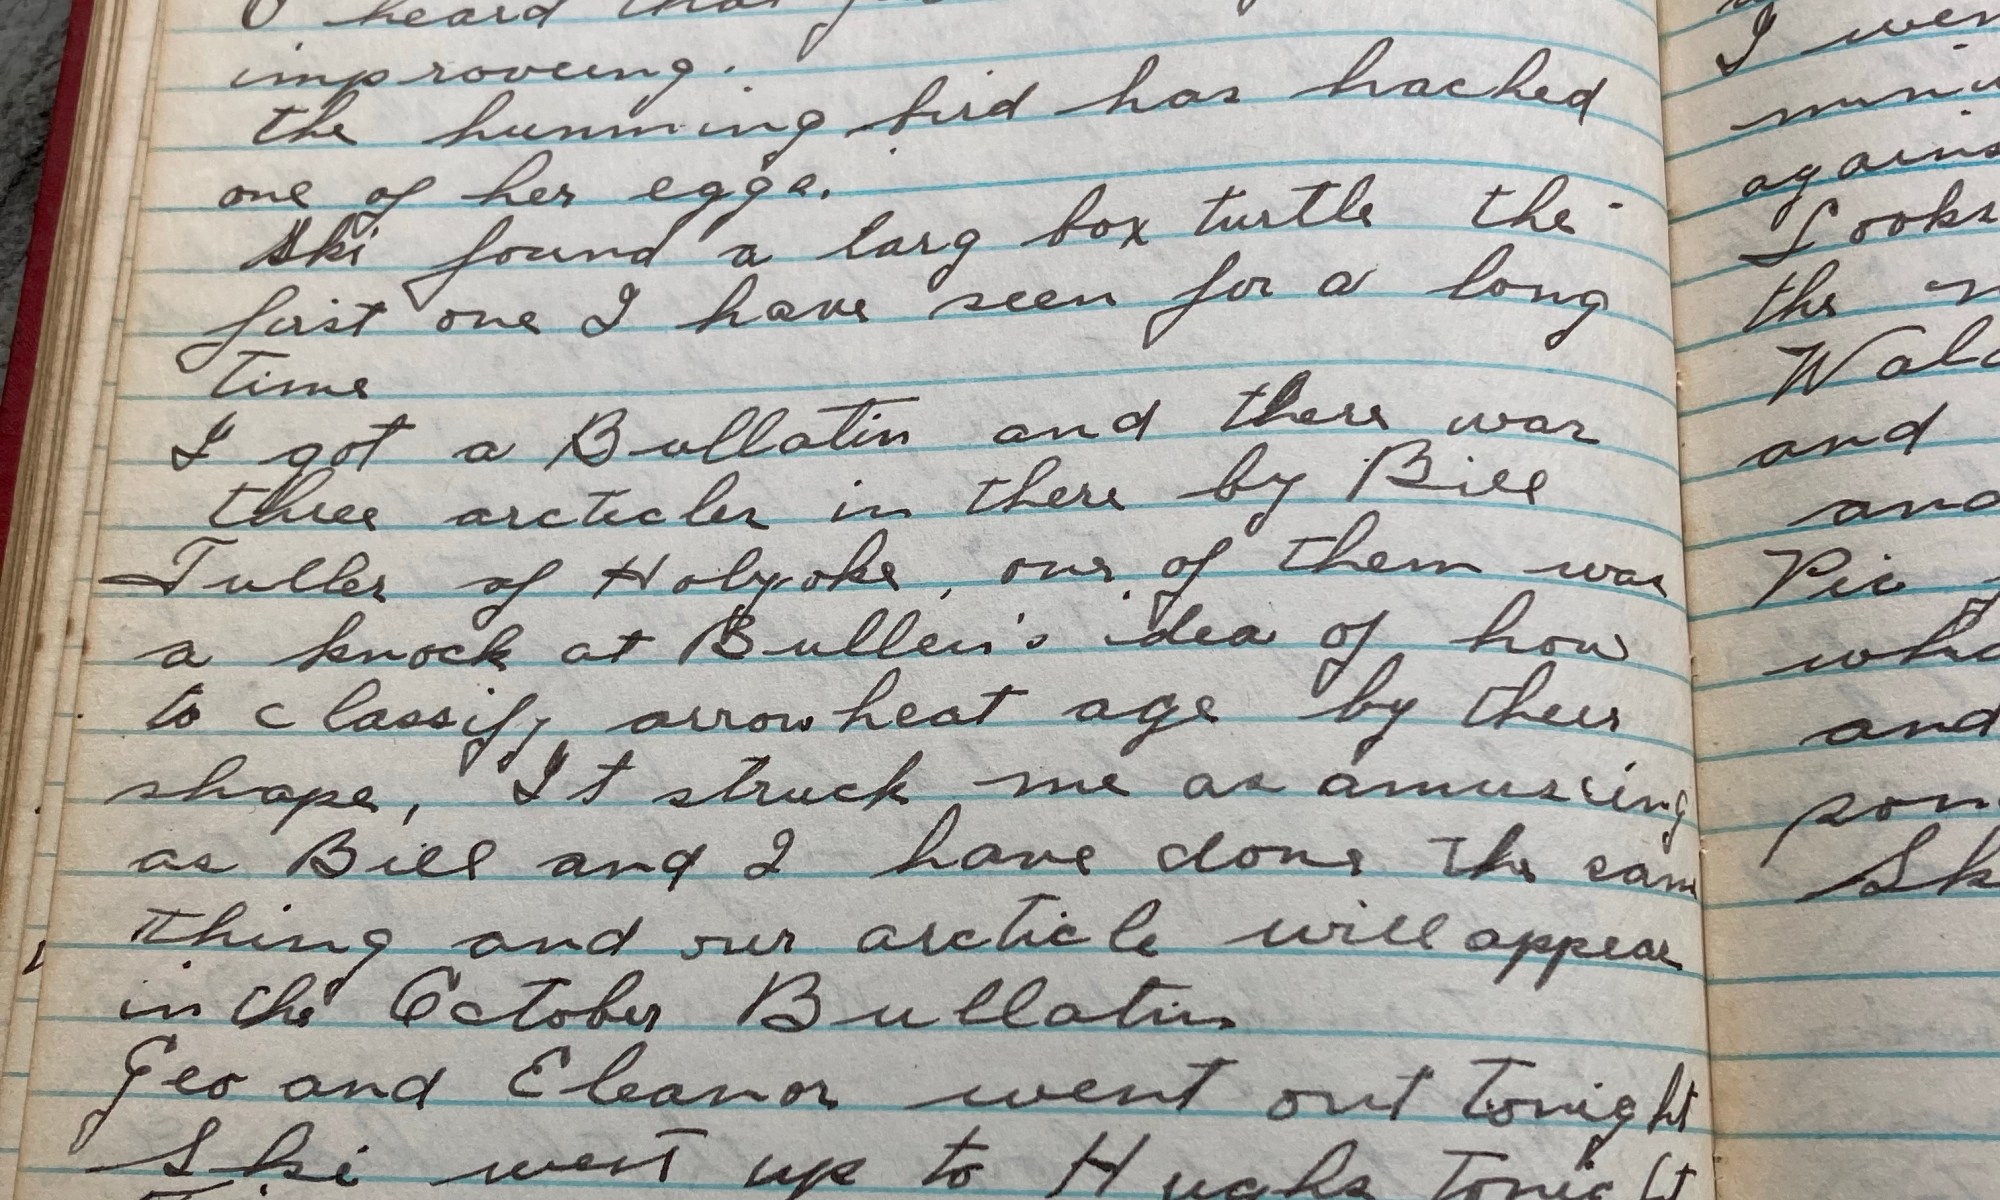 I heard that
improveing.
the humming bird has hached
one of her eggs.
Ski found a larg box turtle the
first one I have seen for a long
time
I got a Bullatin and there was
three arcticles in there by Bill
Fuller of Holyoke, one of them was
a knock at Bullen's idea of how
to classify arrowheat age by their
shape, It struck me as amussing
as Bill and I have done the same
thing and our arcticle will appear
in the October Bullatin
Geo and Eleanor went out tonight
Ski went up to Hughs tonight
I
agains
Looks
the
and
and
Pic
and
Sk